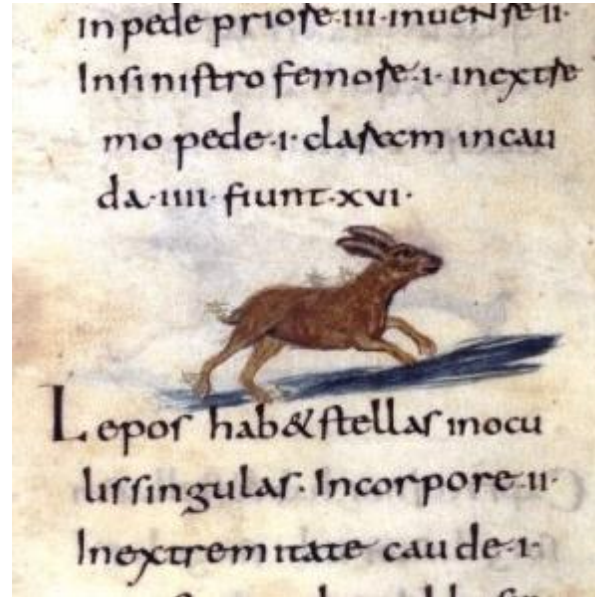 in pede priore·III·in uentre II·
In sinistro femore·I· in extre
mo pede·I· claram in cau
da·IIII·fiunt·XVI·
Lepor hab& stellas in ocu
lis singulas·In corpore·II·
In extremitate caude·I·